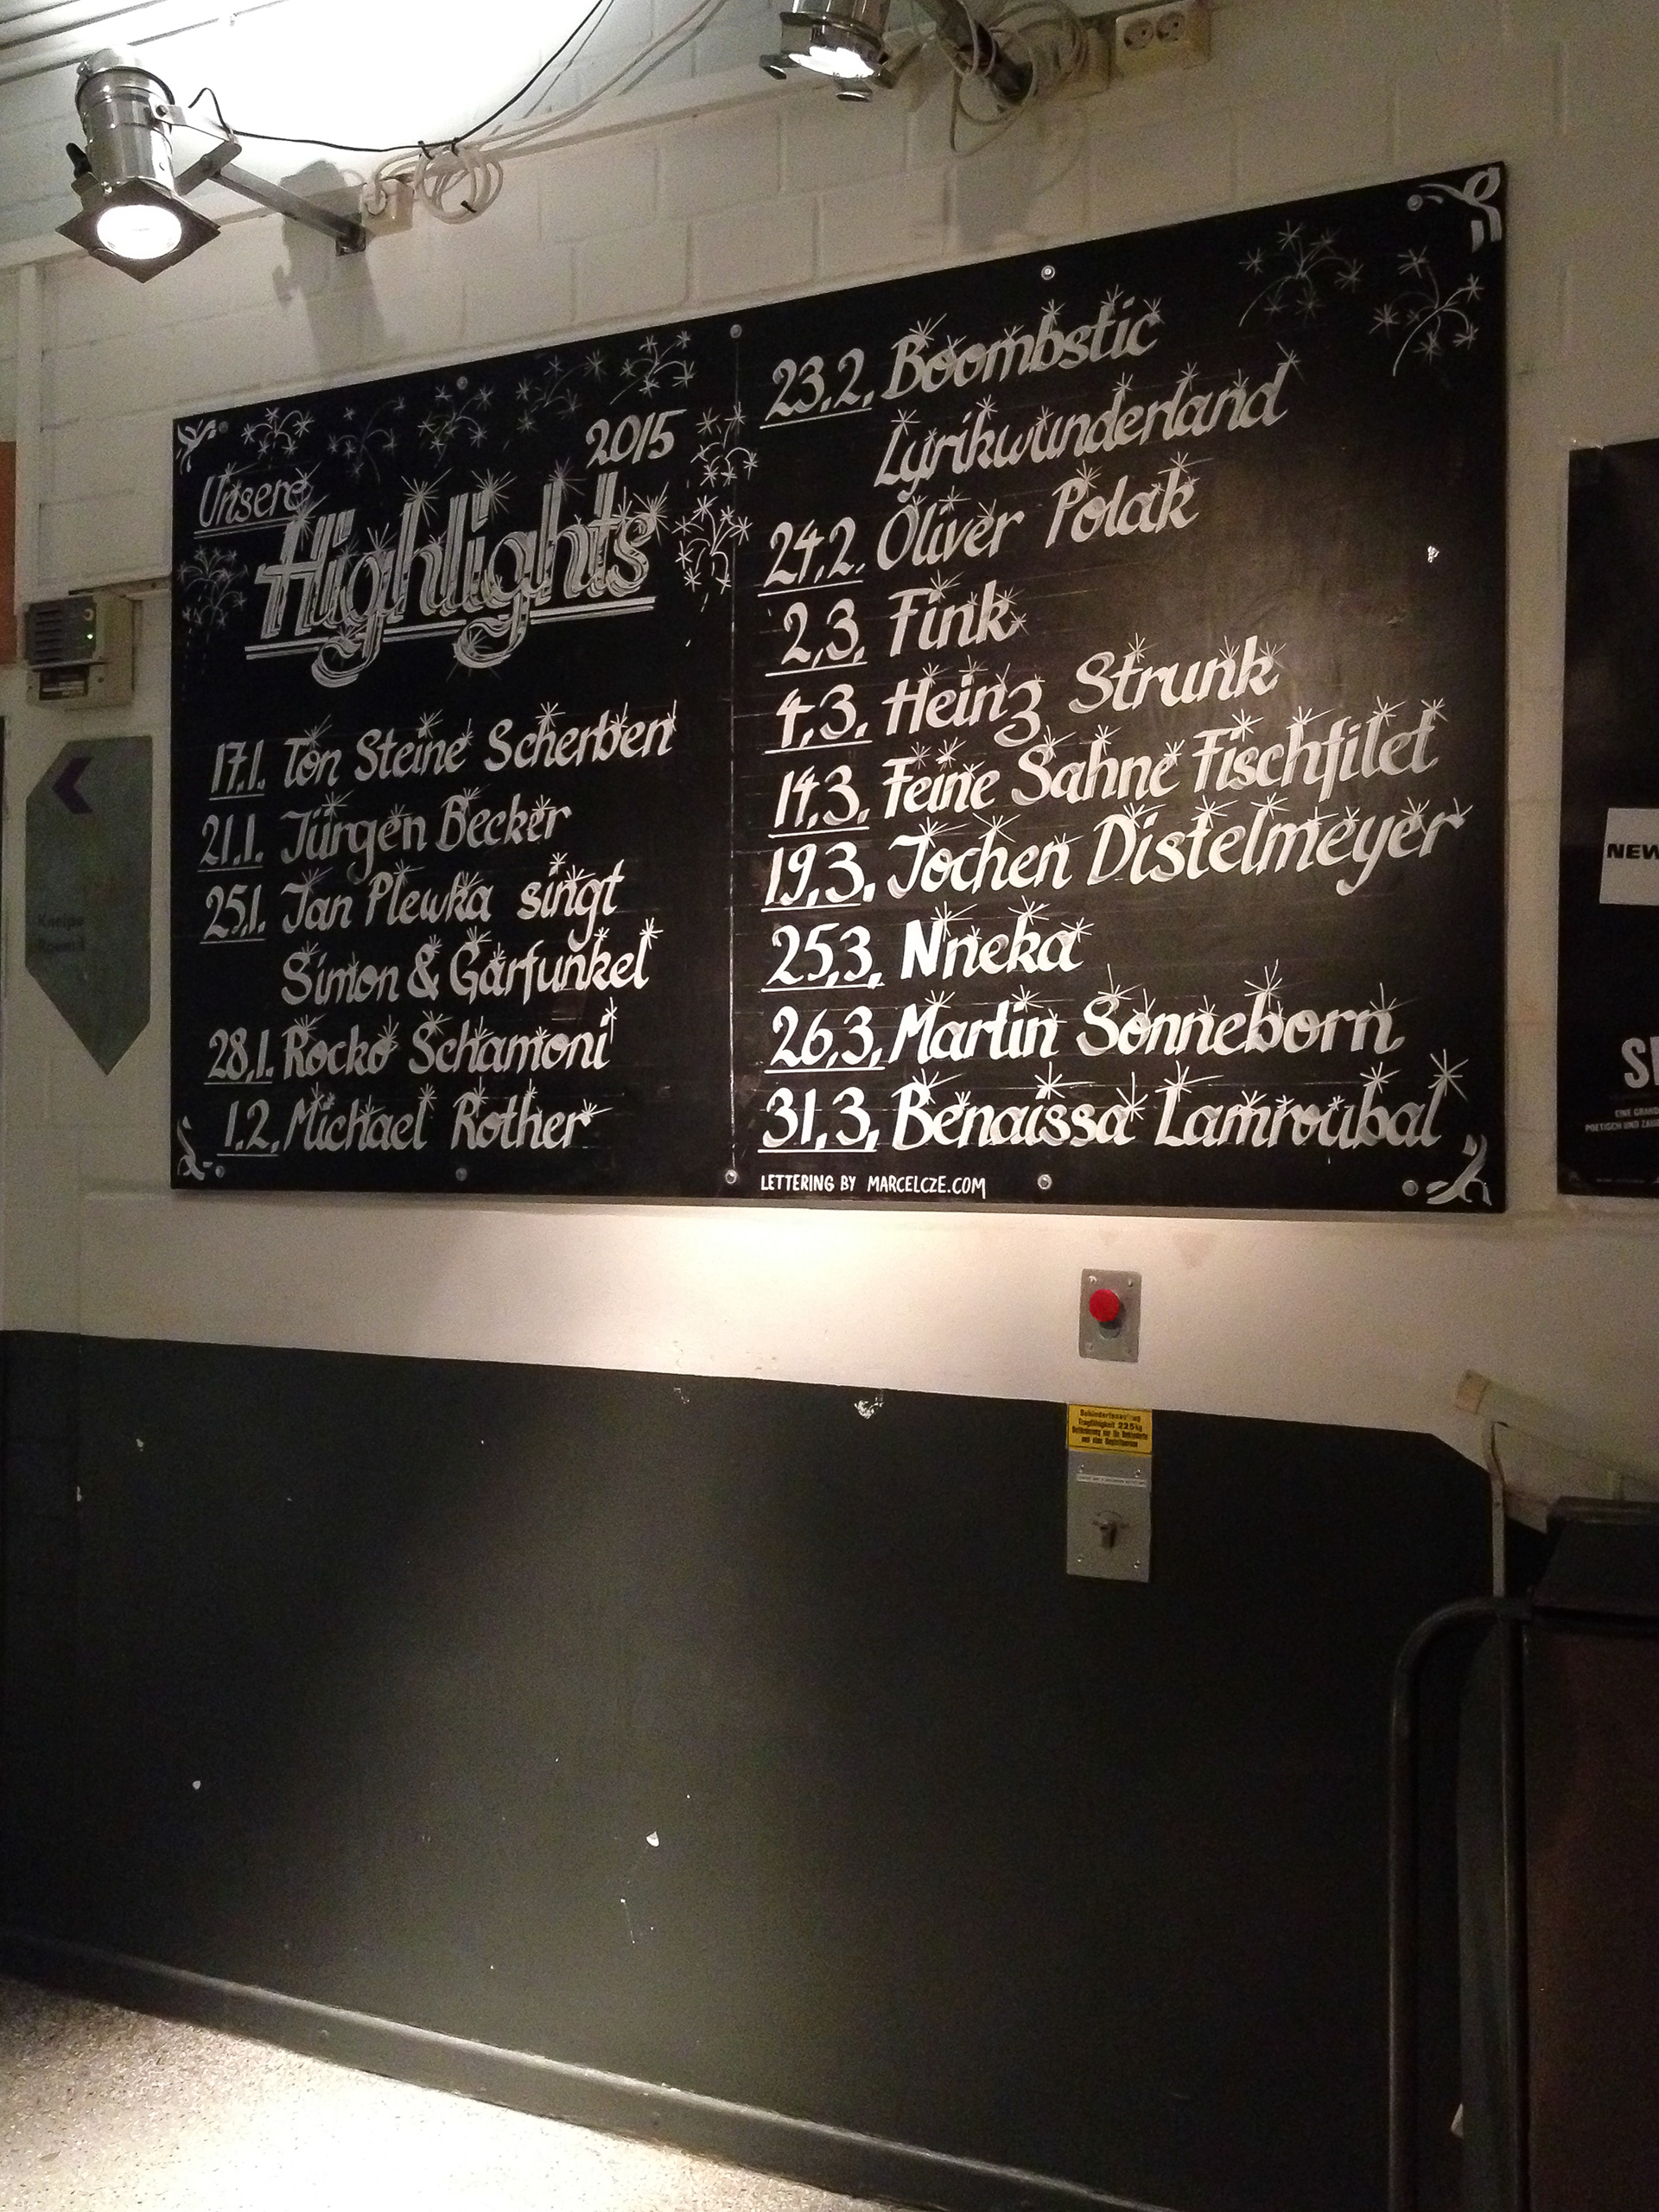 Unsere
2015
Highlights
17.1. Ton Steine Scherben
21.1. Jürgen Becker
25.1. Jan Plewka singt
Simon & Garfunkel
28.1. Rocko Schamoni
1.2. Michael Rother
23.2. Boombstic
Lyrikwunderland
24.2. Oliver Polak
2.3. Fink
4.3. Heinz Strunk
14.3. Feine Sahne Fischfilet
19.3. Jochen Distelmeyer
25.3. Nneka
26.3. Martin Sonneborn
31.3. Benaissa Lamroubal
LETTERING BY MARCELCZE.COM
Kneipe
NEW
EINE GRAND
POETISCH UND ZAU
Tragfähigkeit 225 kg